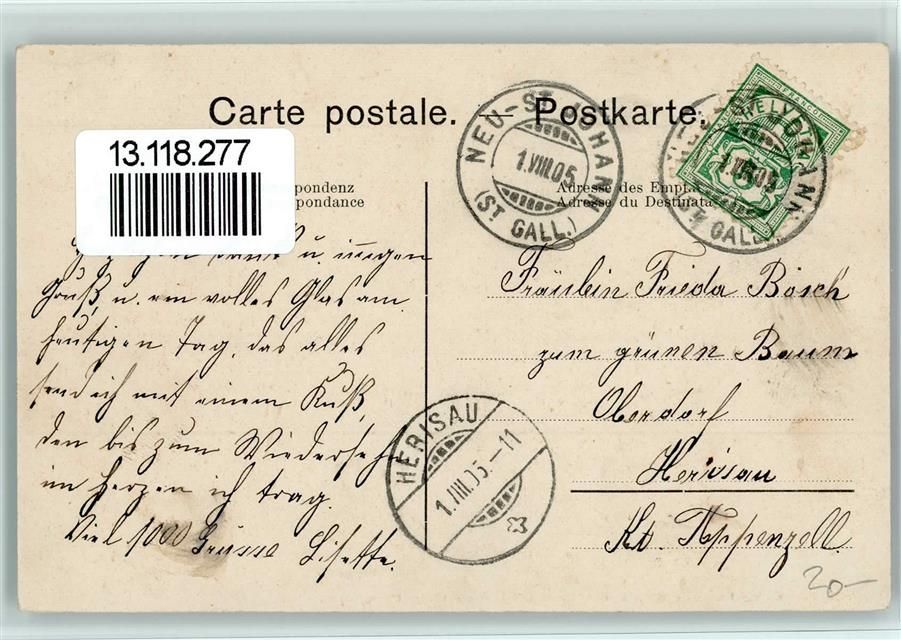 Carte postale. — Postkarte.
13.118.277
pondenz
pondance
Adresse des Empfä
Adresse du Destinata
NEU-ST. JOHANN
1.VIII.05
(ST GALL.)
HELVETIA
FRANCO
5
JOHANN
1.VIII.05
ST GALL.
u. innigen
Gruß, u. ein volles Glas am
heutigen Tag, das alles
send ich mit einem Kuß,
den bis zum Wiedersehn
im Herzen ich trag.
Viel 1000 Grüsse Lisette.
HERISAU
1.VIII.05.-11
Fräulein Frieda Bösch
zum grünen Baum
Oberdorf
Herisau
Kt. Appenzell
20-